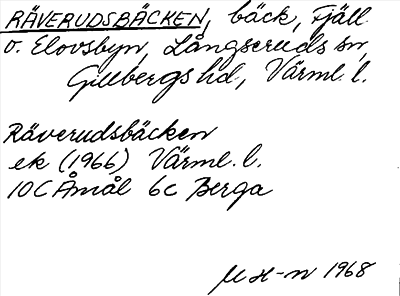 RÄVERUDSBÄCKEN, bäck, Fjäll
v. Elovsbyn, Långseruds sn,
Gillbergs hd, Värml. l.
Räverudsbäcken
ek (1966) Värml. l.
10C Åmål 6c Berga
1968